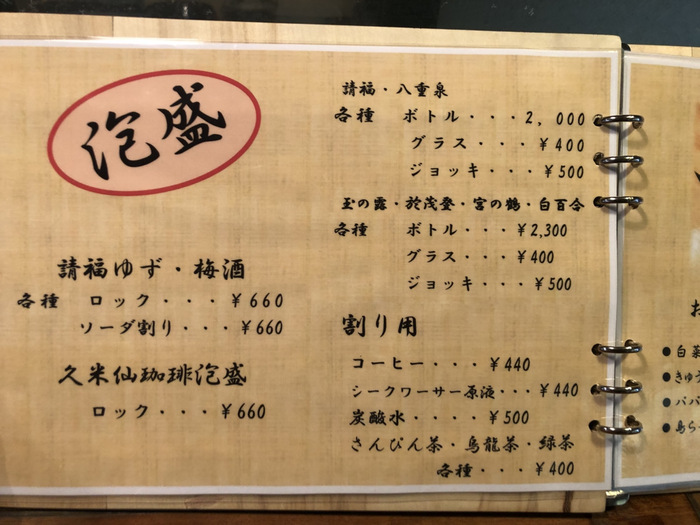 泡盛
請福ゆず・梅酒
各種 ロック・・・￥660
ソーダ割り・・・￥660
久米仙珈琲泡盛
ロック・・・￥660
請福・八重泉
各種 ボトル・・・2,000
グラス・・・￥400
ジョッキ・・・￥500
玉の露・於茂登・宮の鶴・白百合
各種 ボトル・・・￥2,300
グラス・・・￥400
ジョッキ・・・￥500
割り用
コーヒー・・・￥440
シークワーサー原液・・・￥440
炭酸水・・・・￥500
さんぴん茶・烏龍茶・緑茶
各種・・・￥400
お
●白菜
●きゅう
●パパ
●島ら